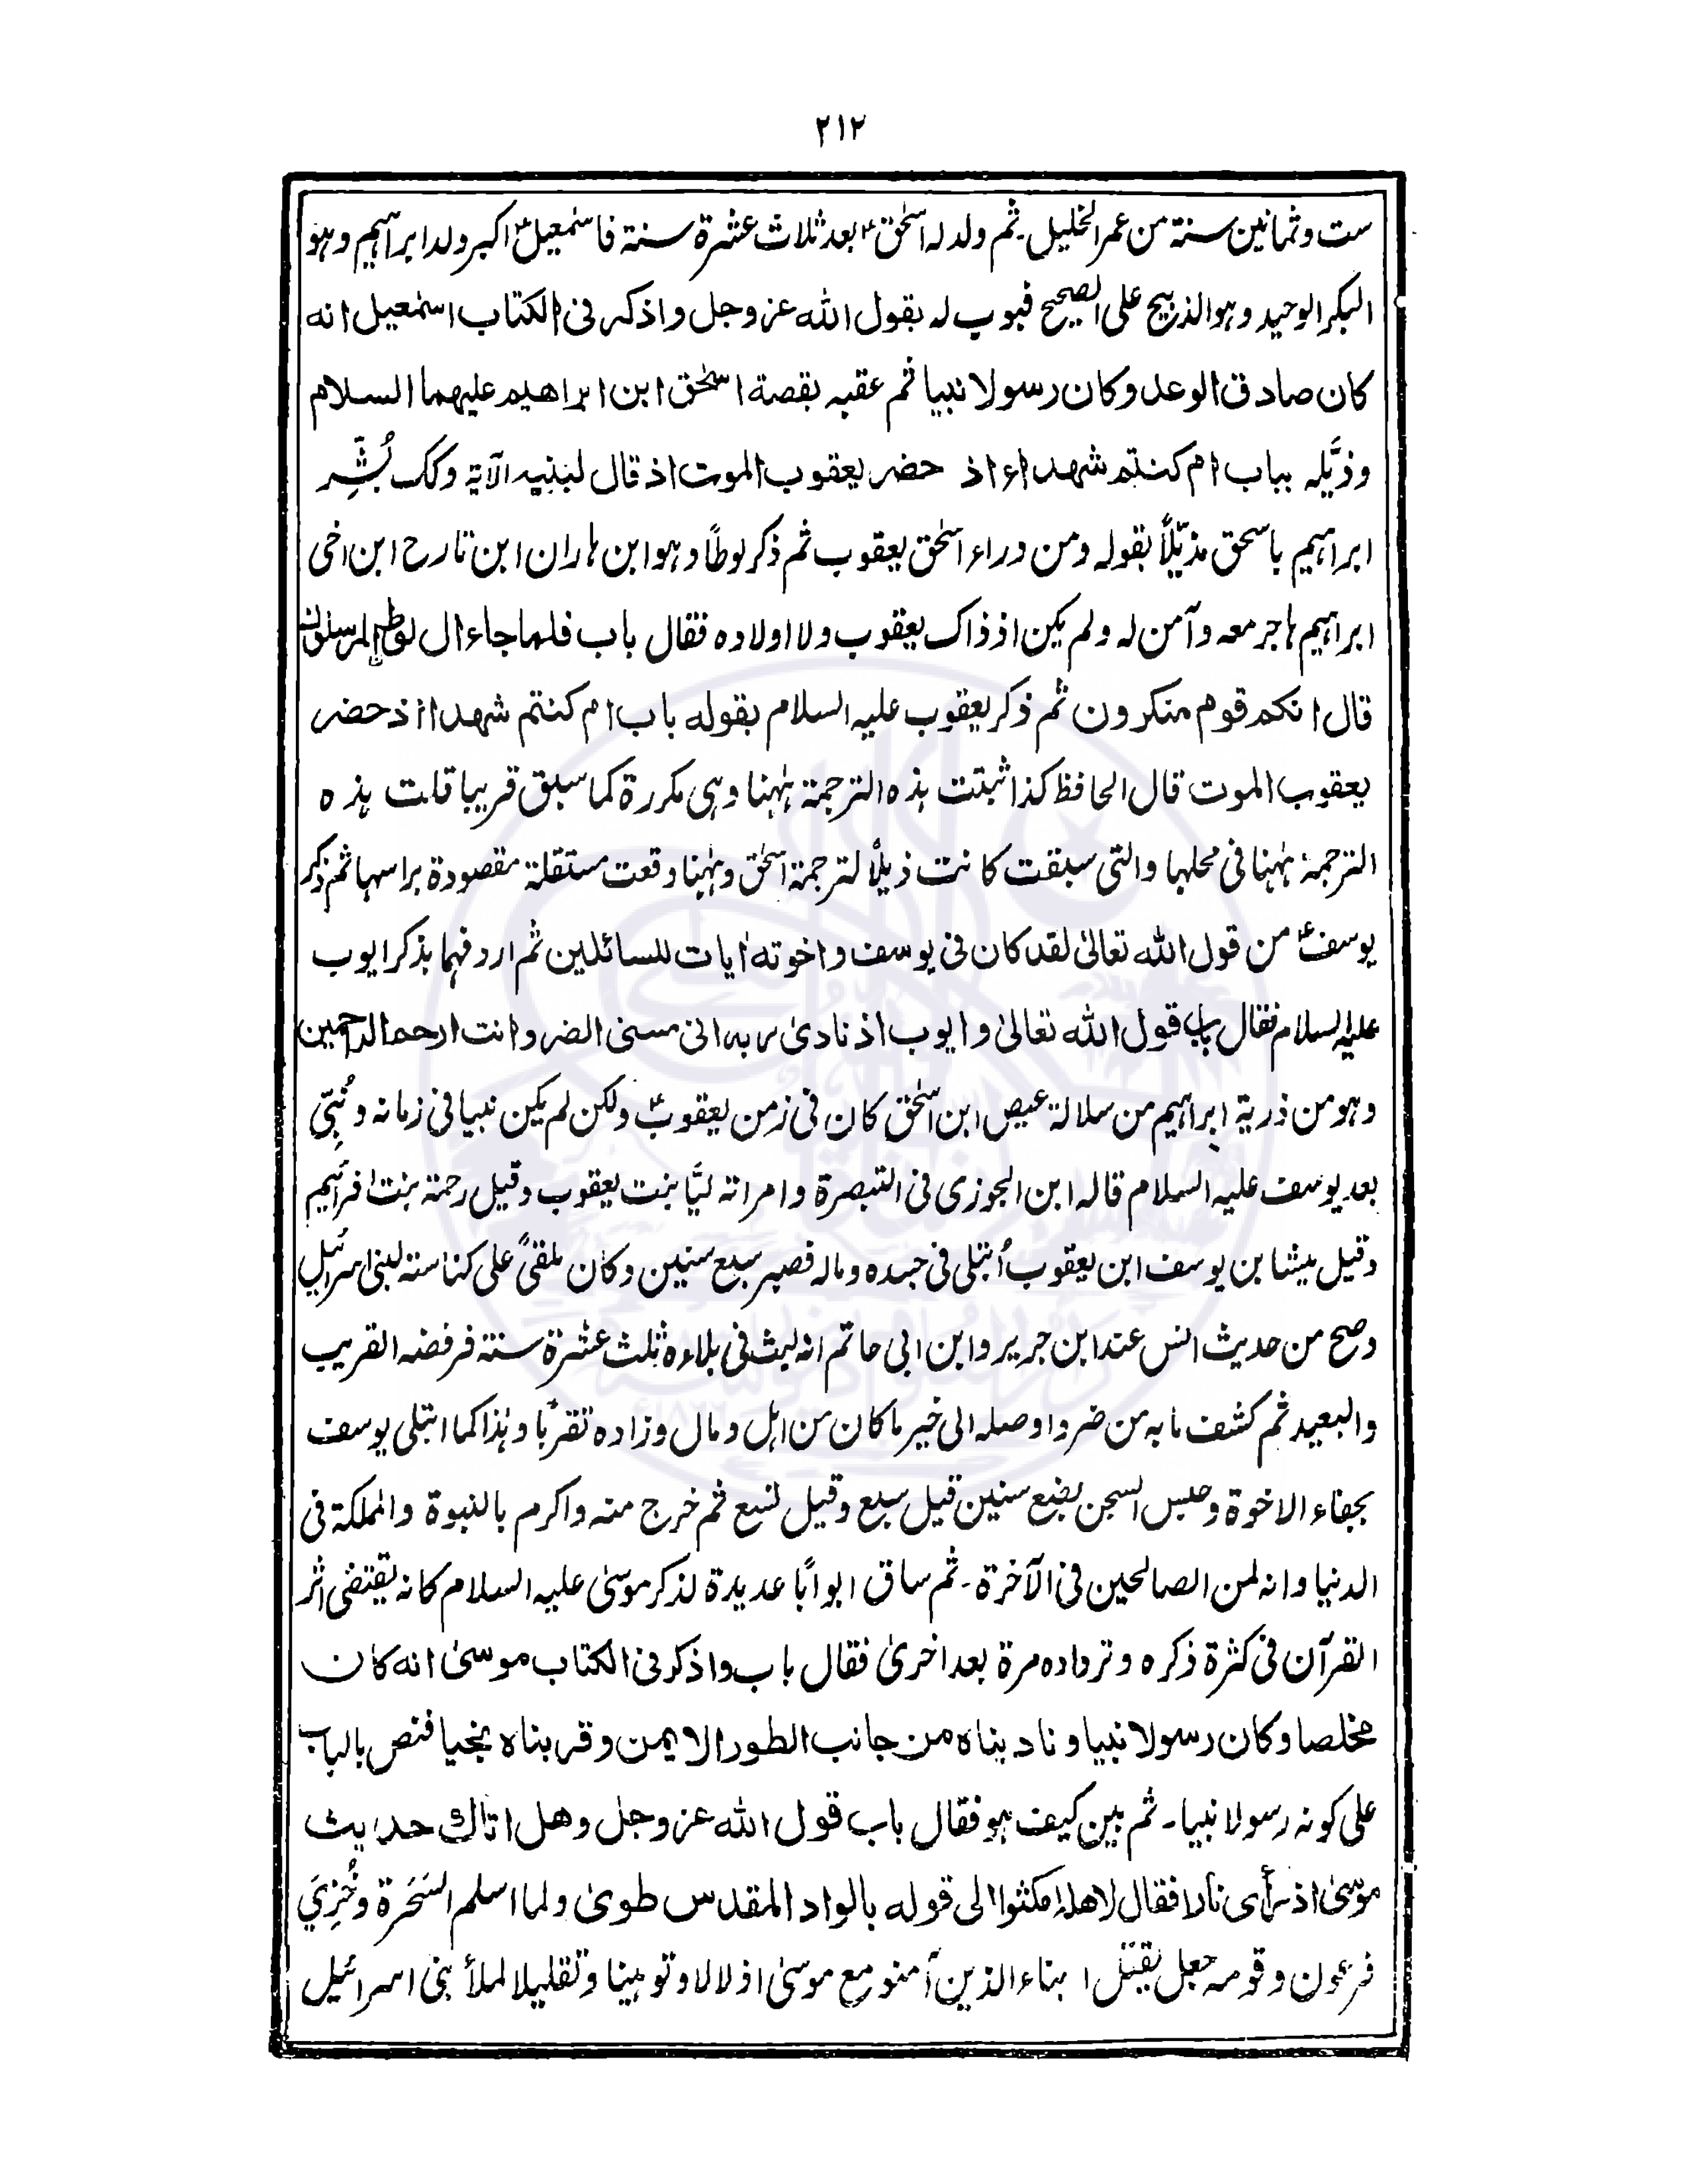 ۲۱۲
ست وثمانين سنة من عمر الخليل۔ ثم ولد له اسحٰق؏ بعد ثلاث عشرة سنة فاسمٰعيل؏ اكبر ولد ابراهيم وهو
البكر الوحيد وهو الذبيح على الصحيح فبوب له بقول الله عز وجل واذكر فى الكتاب اسمٰعيل انه
كان صادق الوعد وكان رسولا نبيا ثم عقبه بقصة اسحٰق ابن ابراهيم عليهما السلام
وذيَّله بباب ام كنتم شهداء اذ حضر يعقوب الموت اذ قال لبنيه الآية وكك بُشِّر
ابراهيم باسحق مذيّلاً بقوله ومن وراء اسحٰق يعقوب ثم ذكر لوطاً وهو ابن هاران ابن تارح ابن اخى
ابراهيم هاجر معه وآمن له ولم يكن اذ ذاك يعقوب ولا اولاده فقال باب فلما جاء ال لوط المرسلون
قال انكم قوم منكرون ثم ذكر يعقوب عليه السلام بقوله باب ام كنتم شهداء اذ حضر
يعقوب الموت قال الحافظ كذا ثبتت هذه الترجمة هٰهنا وهى مكررة كما سبق قريبا قلت هذه
الترجمة هٰهنا فى محلها والتى سبقت كانت ذيلاً لترجمة اسحٰق وهٰهنا وقعت مستقلة مقصودة براسها ثم ذكر
يوسف؏ من قول الله تعالىٰ لقد كان فى يوسف واخوته اٰيات للسائلين ثم اردفهما بذكر ايوب
عليه السلام فقال باب قول الله تعالىٰ وايوب اذ نادىٰ ربه انى مسنى الضر وانت ارحم الراحمين
وهو من ذرية ابراهيم من سلالة عيص ابن اسحٰق كان فى زمن يعقوب؏ ولكن لم يكن نبيا فى زمانه ونُبِّى
بعد يوسف عليه السلام قاله ابن الجوزى فى التبصرة وامراته ليَّا بنت يعقوب وقيل رحمة بنت افرائيم
وقيل ميشا بن يوسف ابن يعقوب اُبتلى فى جسده وماله فصبر سبع سنين وكان ملقىً على كناسة لبنى اسرائيل
وصح من حديث انس عند ابن جرير وابن ابى حاتم انه لبث فى بلاءه ثلٰث عشرة سنة فرفضه القريب
والبعيد ثم كشف ما به من ضر واوصله الى خير ما كان من اهل ومال وزاده تقرباً وهٰذا كما ابتلى يوسف
بجفاء الاخوة وحبس السجن بضع سنين قيل سبع وقيل تسع ثم خرج منه واكرم بالنبوة والمملكة فى
الدنيا وانه لمن الصالحين فى الآخرة۔ ثم ساق ابواباً عديدة لذكر موسىٰ عليه السلام كانه يقتفى اثر
القرآن فى كثرة ذكره وترداده مرة بعد اخرىٰ فقال باب واذكر فى الكتاب موسىٰ انه كان
مخلصا وكان رسولا نبيا وناديناه من جانب الطور الايمن وقربناه نجيا فنص بالباب
على كونه رسولا نبيا۔ ثم بين كيف هو فقال باب قول الله عز وجل وهل اتاك حديث
موسىٰ اذ رأى نارا فقال لاهله امكثوا الى قوله بالواد المقدس طوىٰ ولما اسلم السَحَرة وخُزِيَ
فرعون وقومه جعل يقتِّل ابناء الذين آمنو مع موسىٰ اذلالا وتوهينا وتقليلا لملأ بنى اسرائيل